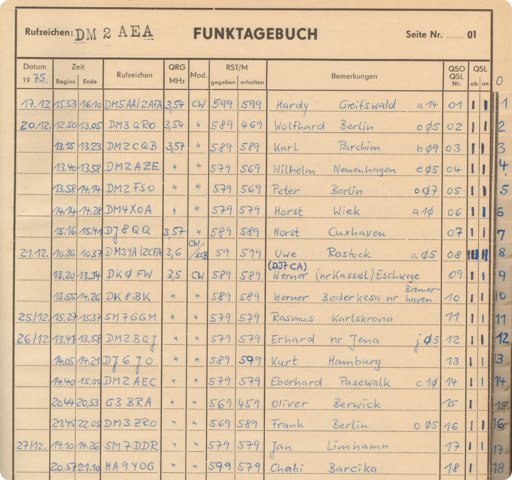 Rufzeichen: DM 2 AEA FUNKTAGEBUCH Seite Nr. 01
Datum Zeit Rufzeichen QRG MHz Mod. RST/M Bemerkungen QSO QSL Nr. QSL
1975 Beginn Ende gegeben erhalten ab an 0
17.12. 15.53 16.10 DM5AA/2AFA 3,54 CW 599 599 Hardy Greifswald a 14 01 1
20.12. 12.50 13.05 DM3QRO 3,54 " 589 469 Wolfhard Berlin o Ø5 02 2
13.15 13.23 DM2CQB 3,57 " 589 589 Karl Parchim b Ø9 03 3
13.40 13.58 DM2AZE " " 579 569 Wilhelm Neuenhagen e Ø5 04 4
13.58 14.14 DM2FSO " " 579 569 Peter Berlin o Ø7 05 5
14.14 14.28 DM4XOA " " 579 579 Horst Wiek a 1Ø 06 6
15.16 15.41 DJ8QQ 3,57 " 589 579 Horst Cuxhaven 07 7
21.12. 10.36 10.57 3,6 CW/SSB 59 579 Uwe Rostock a Ø5 08 8
13.20 13.34 DKØFW 3,5 CW 589 589 (DJ7CA) Werner (nr Kassel) Eschwege 09 9
13.55 14.26 " " 589 589 Werner Bederkesa nr Bremerhaven 10 10
25/12. 15.27 15.37 SM7GGM " " 579 579 Rasmus Karlskrona 11 11
26/12. 13.41 13.58 DM2BQJ " " 579 579 Erhard nr Jena j Ø3 12 12
14.05 14.21 DJ6JO " " 589 599 Kurt Hamburg 13 13
14.40 15.00 DM2AEC " " 579 579 Eberhard Pasewalk c 1Ø 14 14
20.44 20.53 G3BRA " " 569 459 Oliver Berwick 15 15
21.45 22.05 DM3ZRO " " 569 589 Frank Berlin o Ø5 16 16
27/12. 14.10 14.26 SM7DDR " " 579 579 Jan Limhamn 17 17
20.57 21.10 HA9YOG " " 599 579 Chabi Barcika 18 18